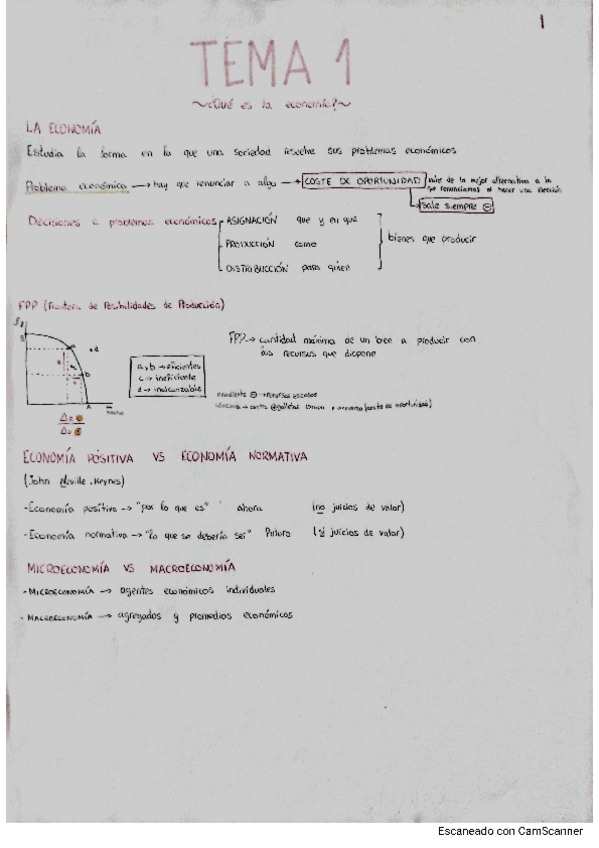 1
TEMA 1
~¿Qué es la economía?~
LA ECONOMÍA
Estudia la forma en la que una sociedad resuelve sus problemas económicos
Problema económico → hay que renunciar a algo → COSTE DE OPORTUNIDAD valor de la mejor alternativa a la
que renunciamos al hacer una elección
Sale siempre ⊖
Decisiones a problemas económicos ASIGNACIÓN que y en que
PRODUCCIÓN como
DISTRIBUCCIÓN para quien
bienes que producir
FPP (Frontera de Posibilidades de Producción)
FPP → cantidad máxima de un bien a producir con
los recursos que dispone
a y b → eficientes
c → ineficiente
d → inalcanzable
pendiente ⊖ → recursos escasos
ECONOMÍA POSITIVA VS ECONOMÍA NORMATIVA
(John Neville Keynes)
-Economía positiva → "por lo que es" ahora (no juicios de valor)
-Economía normativa → "lo que se debería ser" Futuro (si juicios de valor)
MICROECONOMÍA VS MACROECONOMÍA
-MICROECONOMÍA → agentes económicos individuales
-MACROECONOMÍA → agregados y promedios económicos
Escaneado con CamScanner